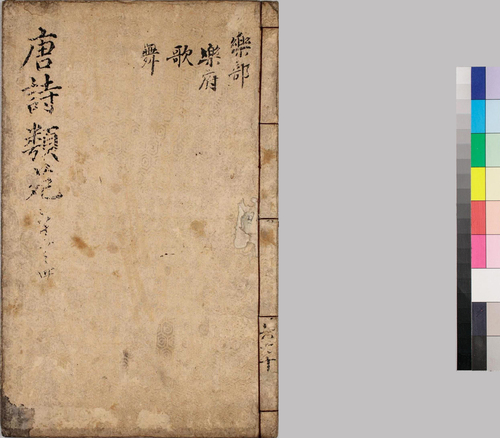 樂部
樂府
歌
舞
唐詩類苑